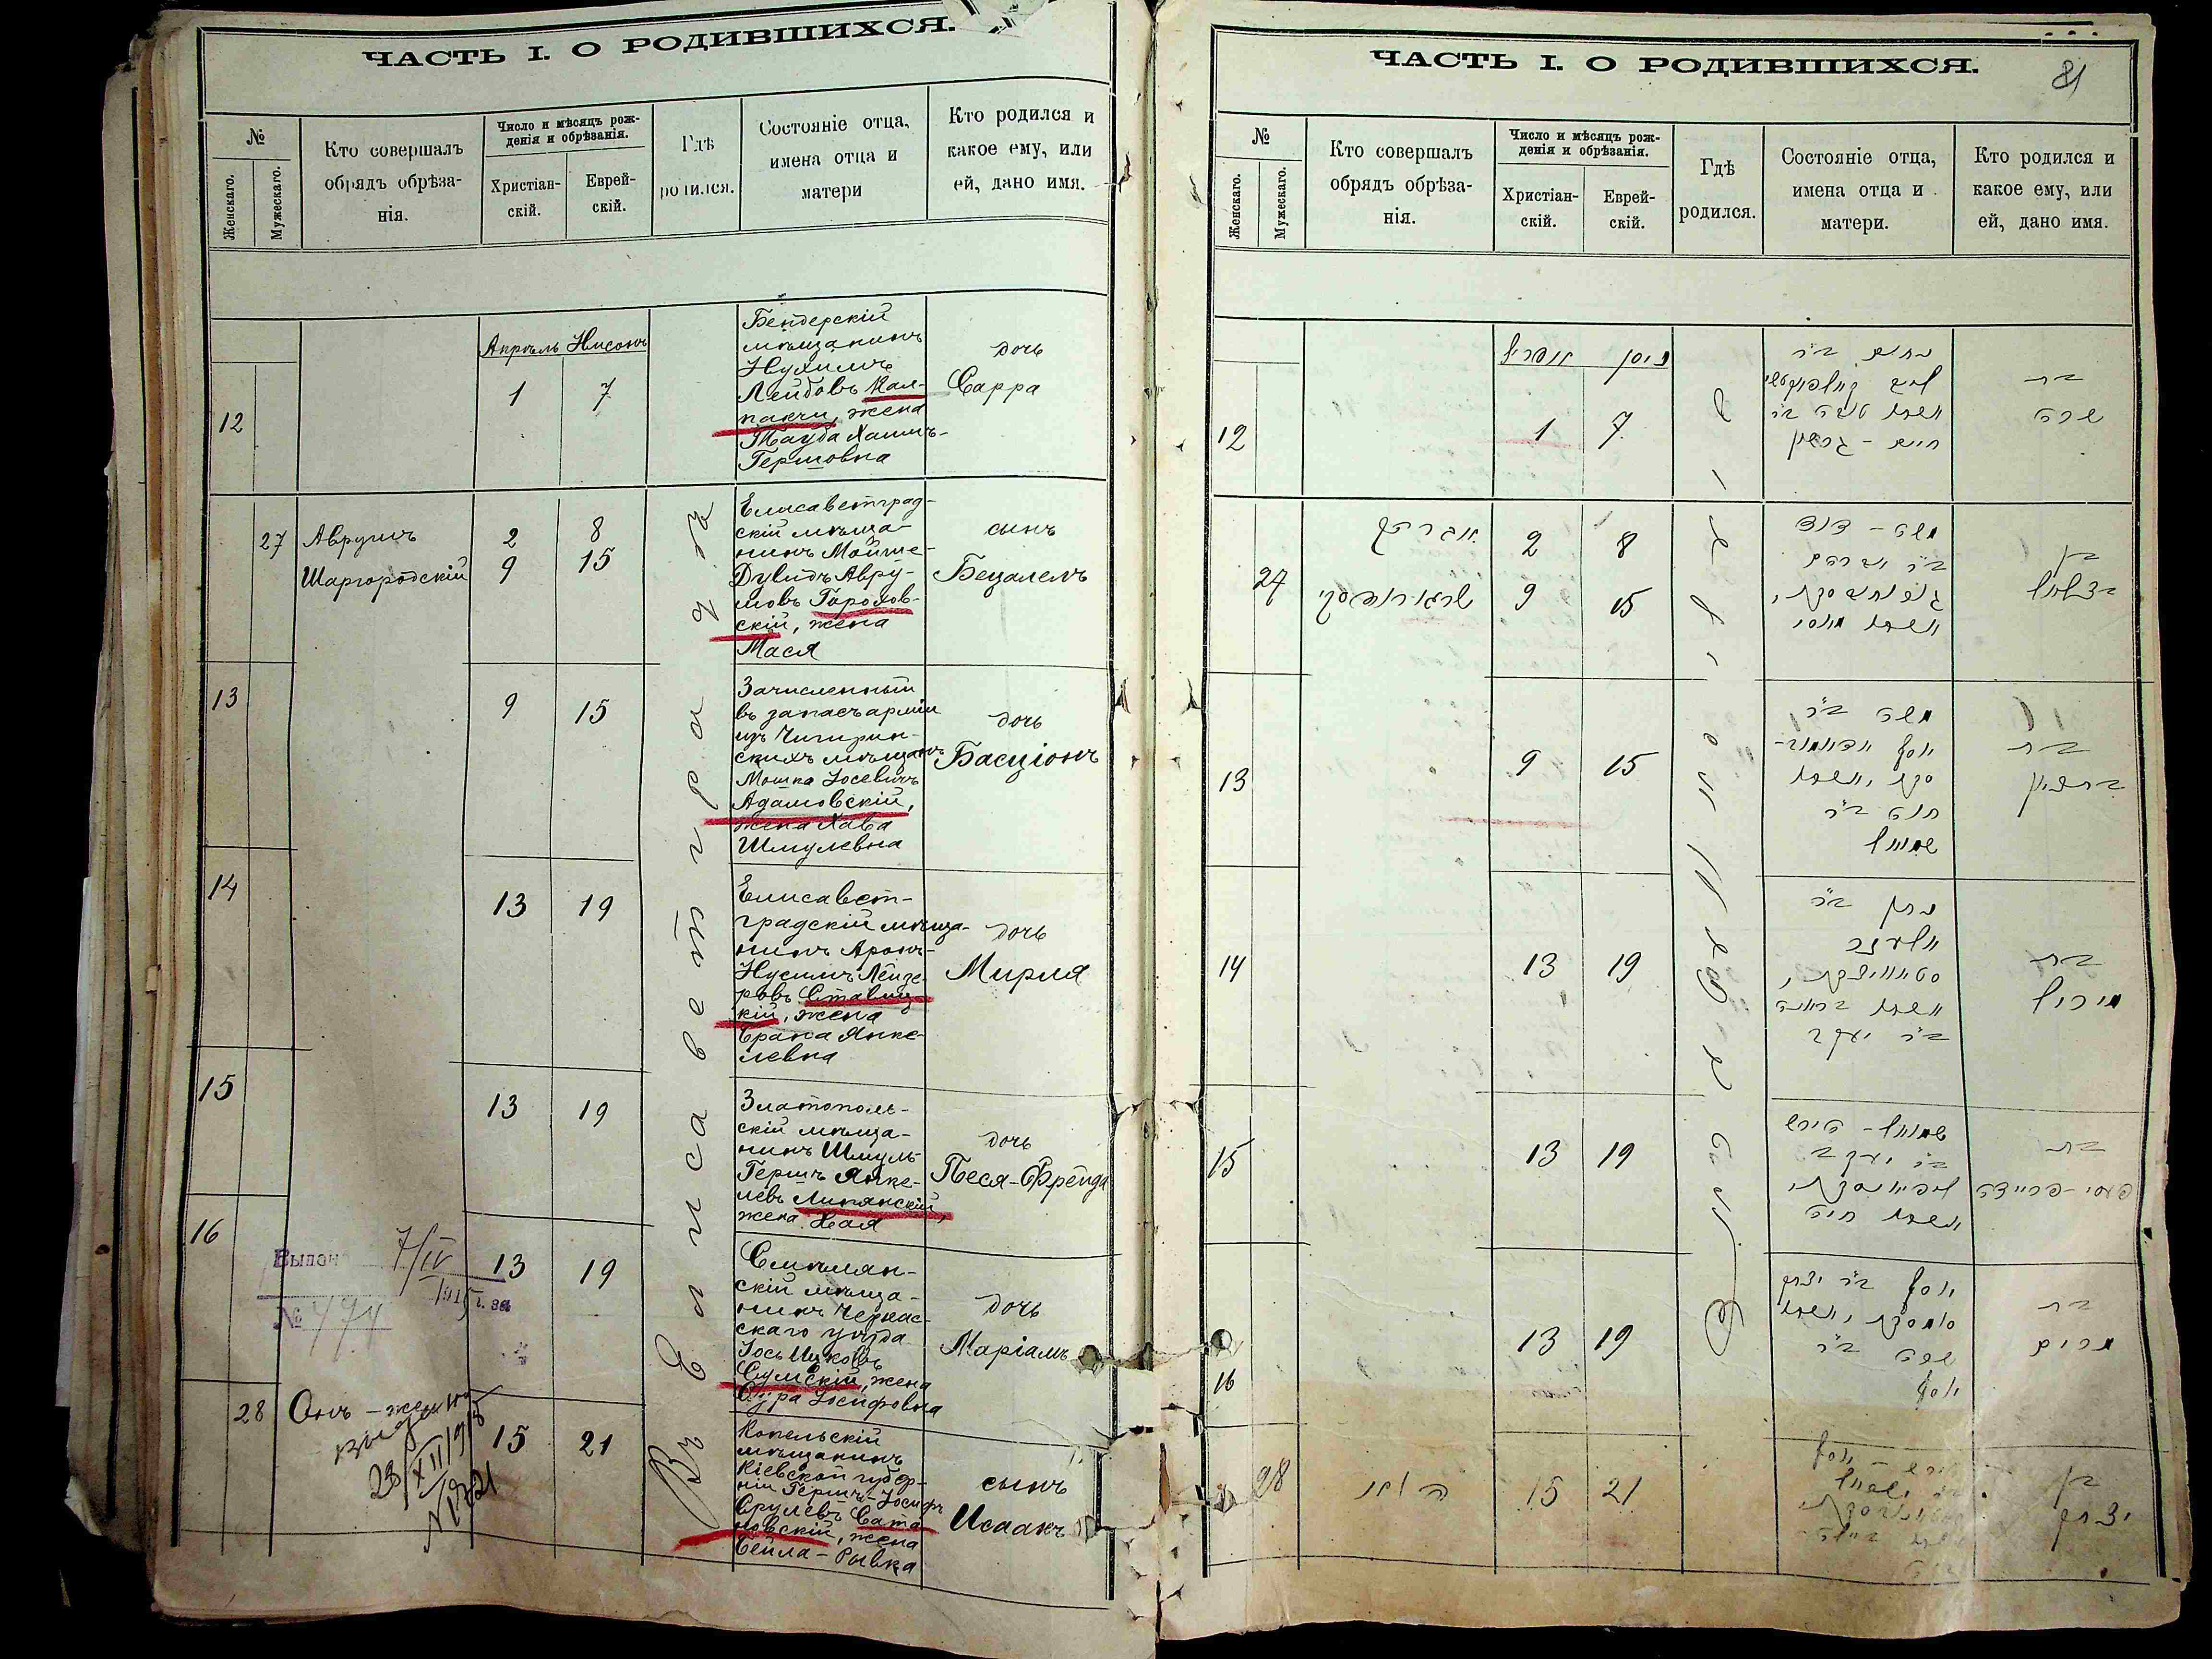 ЧАСТЬ I. О РОДИВШИХСЯ.
№
Женскаго.
Мужескаго.
Кто совершалъ
обрядъ обрѣза-
нія.
Число и мѣсяцъ рож-
денія и обрѣзанія.
Христіан-
скій.
Еврей-
скій.
Гдѣ
родился.
Состояніе отца,
имена отца и
матери
Кто родился и
какое ему, или
ей, дано имя.
Апрѣль Нисонъ
12
1 7
Бендерскій
мѣщанинъ
Нухимъ
Лейбовъ Кал-
пакчи, жена
Тауба Хаимъ-
Гершовна
дочь
Сарра
27
Аврумъ
Шаргородскій
2 8
9 15
Елисаветград-
скій мѣща-
нинъ Мойше-
Дувидъ Авру-
мовъ Горохов-
скій, жена
Мася
сынъ
Бецалелъ
13
9 15
Зачисленный
въ запасъ арміи
изъ Чигирин-
скихъ мѣщанъ
Мошка Іосевичъ
Адамовскій,
жена Хава
Шмулевна
дочь
Басціонъ
14
13 19
Елисавет-
градскій мѣща-
нинъ Аронъ-
Нусимъ Лейзе-
ровъ Ставиц-
кій, жена
Брана Янке-
левна
дочь
Мирля
15
13 19
Златополь-
скій мѣща-
нинъ Шмуль-
Гершъ Янке-
левъ Липянскій,
жена Хая
дочь
Песя-Фрейда
16
Выдан
7/IV
1915 г. за
№ 474
13 19
Смѣлян-
скій мѣща-
нинъ Черкас-
скаго уѣзда
Іось Ицковъ
Сумскій, жена
Сура Іосифовна
дочь
Маріамъ
28
Онъ-же
23/XII
15 21
Копельскій
мѣщанинъ
Кіевской губер-
ніи Гершъ-Іосифъ
Срулевъ Сата-
новскій, жена
Бейла-Рывка
сынъ
Исаакъ
Въ Елисаветградѣ
ЧАСТЬ I. О РОДИВШИХСЯ.
81
№
Женскаго.
Мужескаго.
Кто совершалъ
обрядъ обрѣза-
нія.
Число и мѣсяцъ рож-
денія и обрѣзанія.
Христіан-
скій.
Еврей-
скій.
Гдѣ
родился.
Состояніе отца,
имена отца и
матери.
Кто родился и
какое ему, или
ей, дано имя.
אפריל ניסן
12
1 7
נחום ב״ר
חיים - גרשון
בת
שרה
27
אברהם
2 8
9 15
משה - דוד
ב״ר אברהם
בן
בצלאל
13
9 15
משה ב״ר
יוסף
חוה ב״ר
שמואל
בת
בת ציון
14
13 19
ב״ר יעקב
בת
מירל
15
13 19
שמואל - הירש
ב״ר יעקב
בת
פעסי - פריידה
16
13 19
יוסף ב״ר יצחק
שרה ב״ר
יוסף
בת
מרים
28
הנ״ל
15 21
בן
יצחק